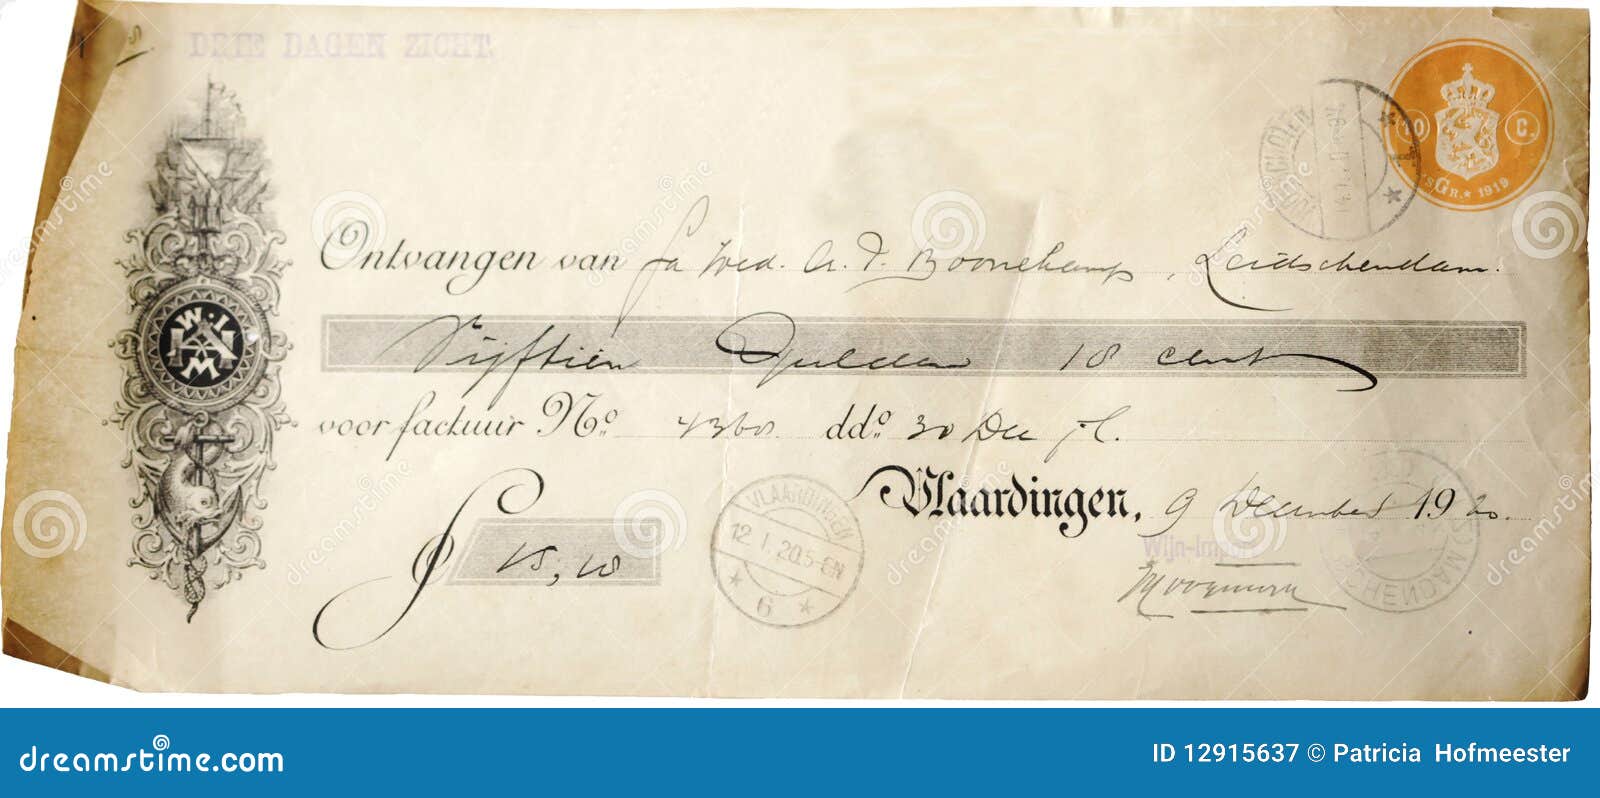 DRIE DAGEN ZICHT.
10 C.
GR. * 1919
Ontvangen van fa Wed. A. J. Boonekamp, Leidschendam.
Vijftien Gulden 18 cent
voor factuur No. 4360. ddo. 30 Dec jl.
Vlaardingen, 9 December 1920.
f 15,18
VLAARDINGEN
12.1.20.5-6N
* 6 *
Wijn-Import
W.I.M
dreamstime.com
ID 12915637 © Patricia Hofmeester